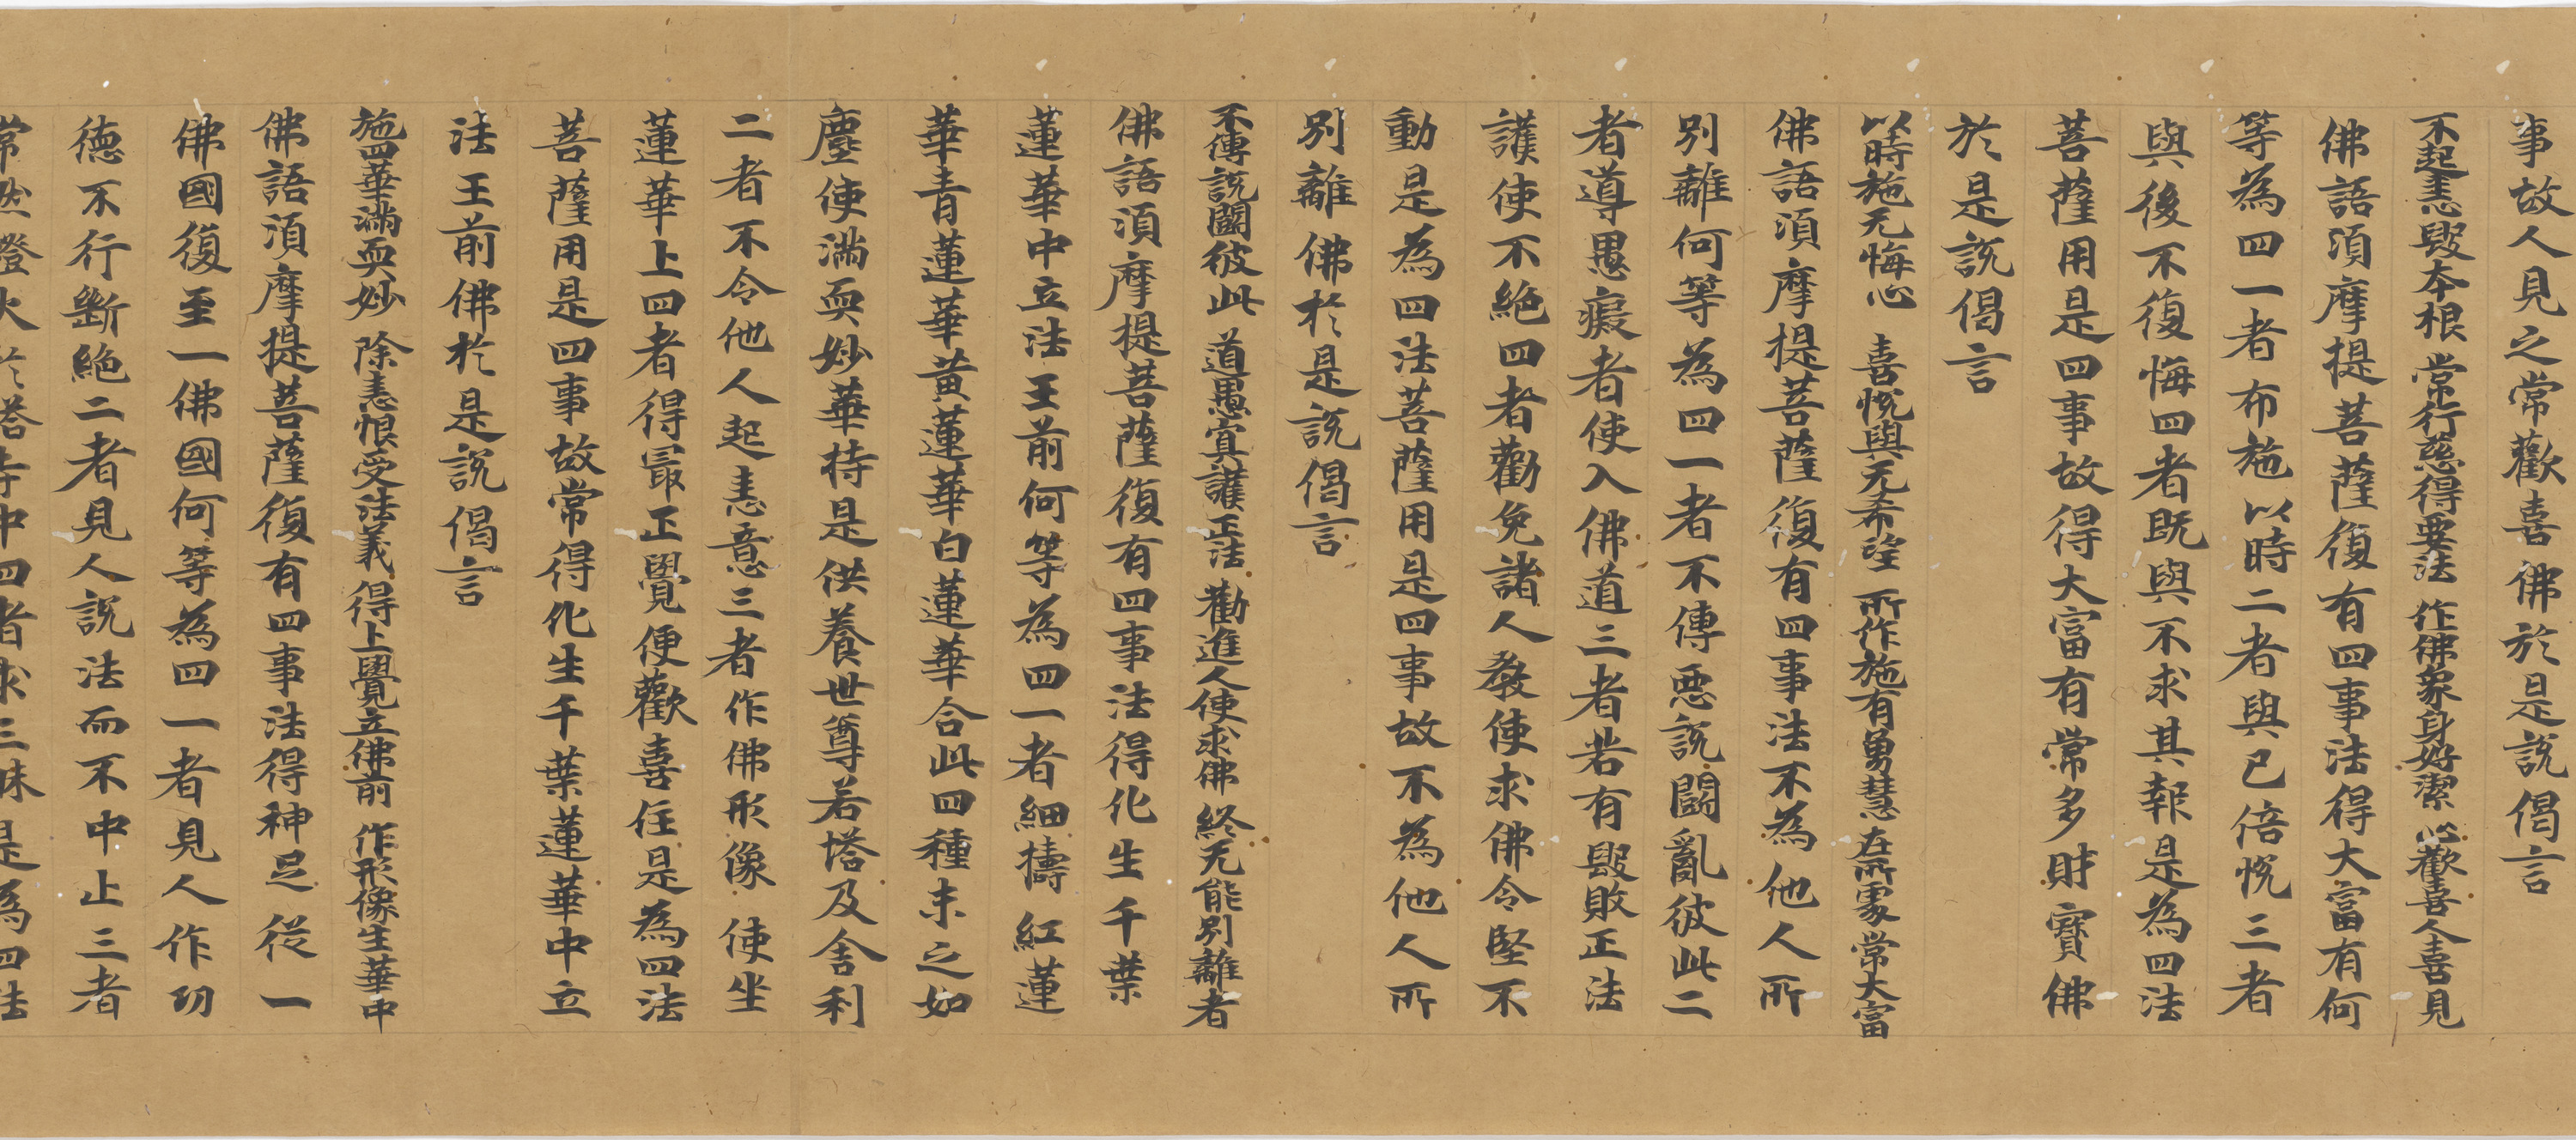 事故人見之常歡喜佛於是說偈言
不起恚毀本根 常行慈得要法 作佛象身好潔 心歡喜人喜見
佛語須摩提菩薩復有四事法得大富有何
等為四一者布施以時二者與已倍悅三者
與後不復悔四者既與不求其報是為四法
菩薩用是四事故得大富有常多財寶佛
於是說偈言
以時施无悔心 喜悅與无希望 所作施有勇慧 在所處常大富
佛語須摩提菩薩復有四事法不為他人所
別離何等為四一者不傳惡說鬪亂彼此二
者導愚癡者使入佛道三者若有毀敗正法
護使不絕四者勸勉諸人教使求佛令堅不
動是為四法菩薩用是四事故不為他人所
別離佛於是說偈言
不傳說鬪彼此 道愚冥護正法 勸進人使求佛 終无能別離者
佛語須摩提菩薩復有四事法得化生千葉
蓮華中立法王前何等為四一者細擣紅蓮
華青蓮華黃蓮華白蓮華合此四種末之如
塵使滿耎妙華持是供養世尊若塔及舍利
二者不令他人起恚意三者作佛形像使坐
蓮華上四者得最正覺便歡喜住是為四法
菩薩用是四事故常得化生千葉蓮華中立
法王前佛於是說偈言
施四華滿耎妙 除恚恨受法義 得上覺立佛前 作形像生華中
佛語須摩提菩薩復有四事法得神足從一
佛國復至一佛國何等為四一者見人作功
德不行斷絕二者見人說法而不中止三者
常然燈火於塔寺中四者求三昧是為四法